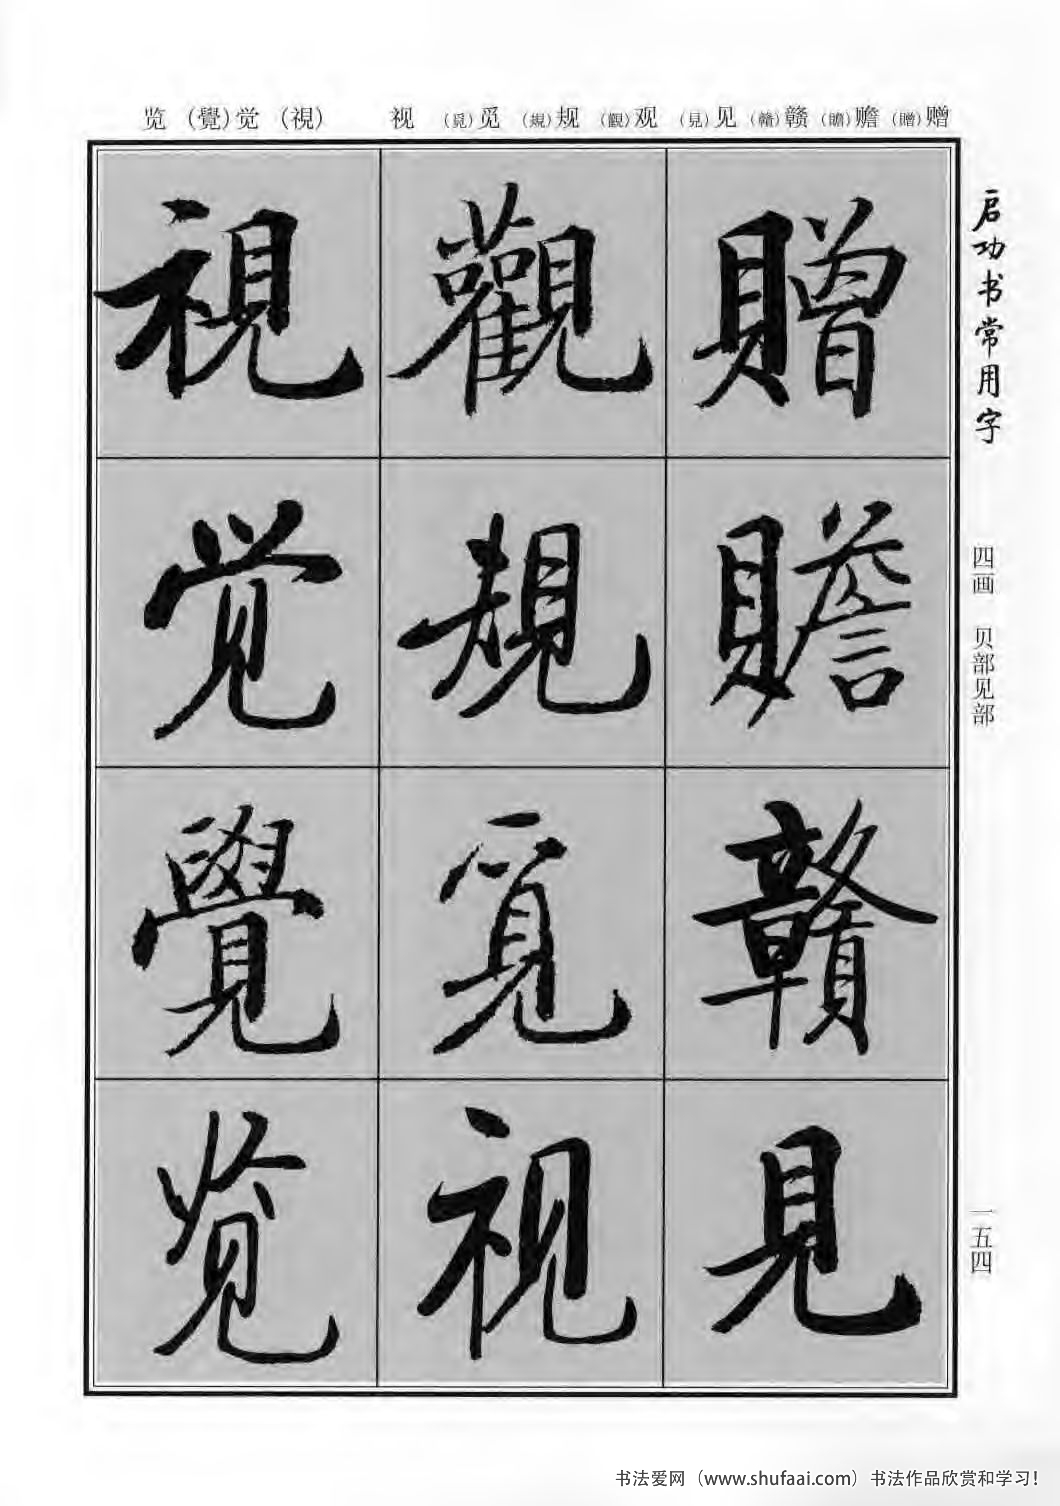 赠（贈）赡（贍）赣（贛）见（見）观（觀）规（規）觅（覓）视
（視）觉（覺）览
启功书常用字
四画 贝部见部
一五四
贈
贍
贛
見
觀
規
覓
视
視
觉
覺
览
书法爱网（www.shufaai.com）书法作品欣赏和学习！